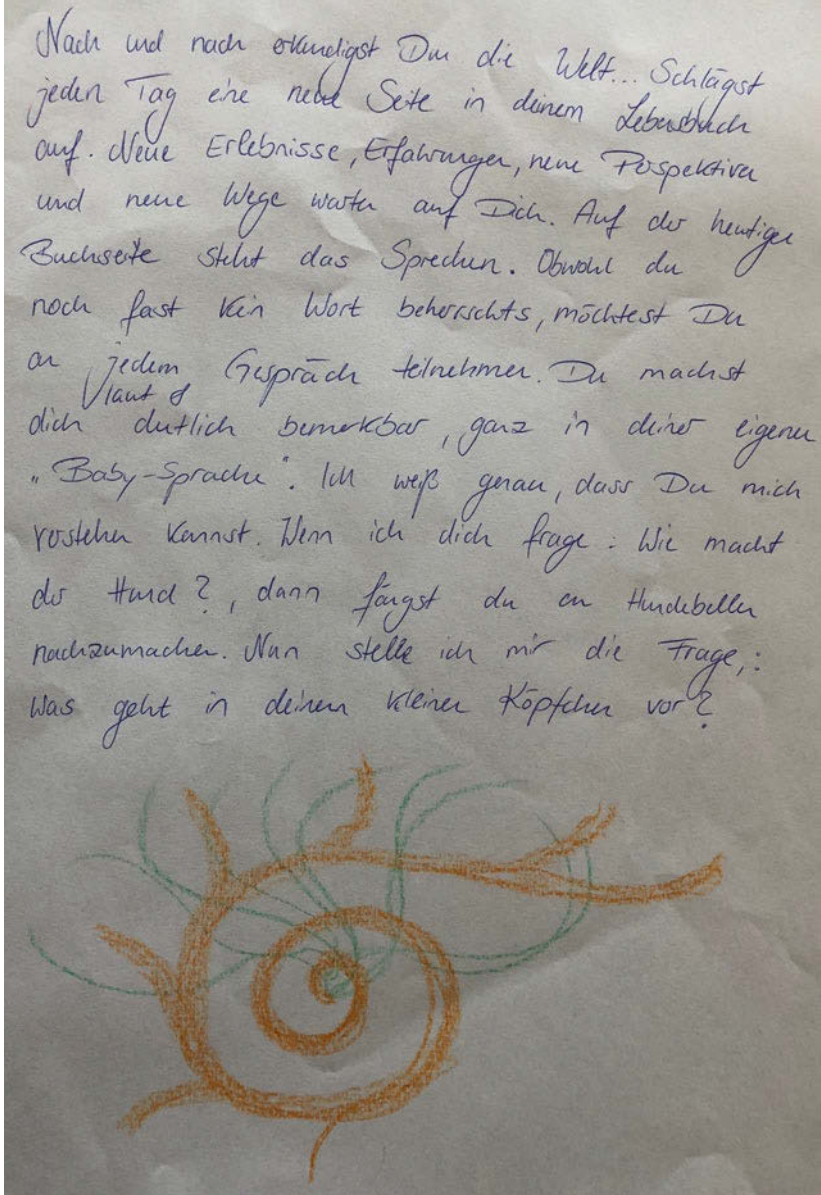 Nach und nach erkundigst Du die Welt... Schlägst
jeden Tag eine neue Seite in deinem Lebensbuch
auf. Neue Erlebnisse, Erfahrungen, neue Perspektiven
und neue Wege warten auf Dich. Auf der heutigen
Buchseite steht das Sprechen. Obwohl du
noch fast kein Wort beherrschts, möchtest Du
an jedem Gespräch teilnehmen. Du machst
laut &
dich deutlich bemerkbar, ganz in deiner eigenen
„Baby-Sprache". Ich weiß genau, dass Du mich
verstehen kannst. Wenn ich dich frage: Wie macht
der Hund?, dann fängst du an Hundebellen
nachzumachen. Nun stelle ich mir die Frage,:
Was geht in deinem kleinen Köpfchen vor?